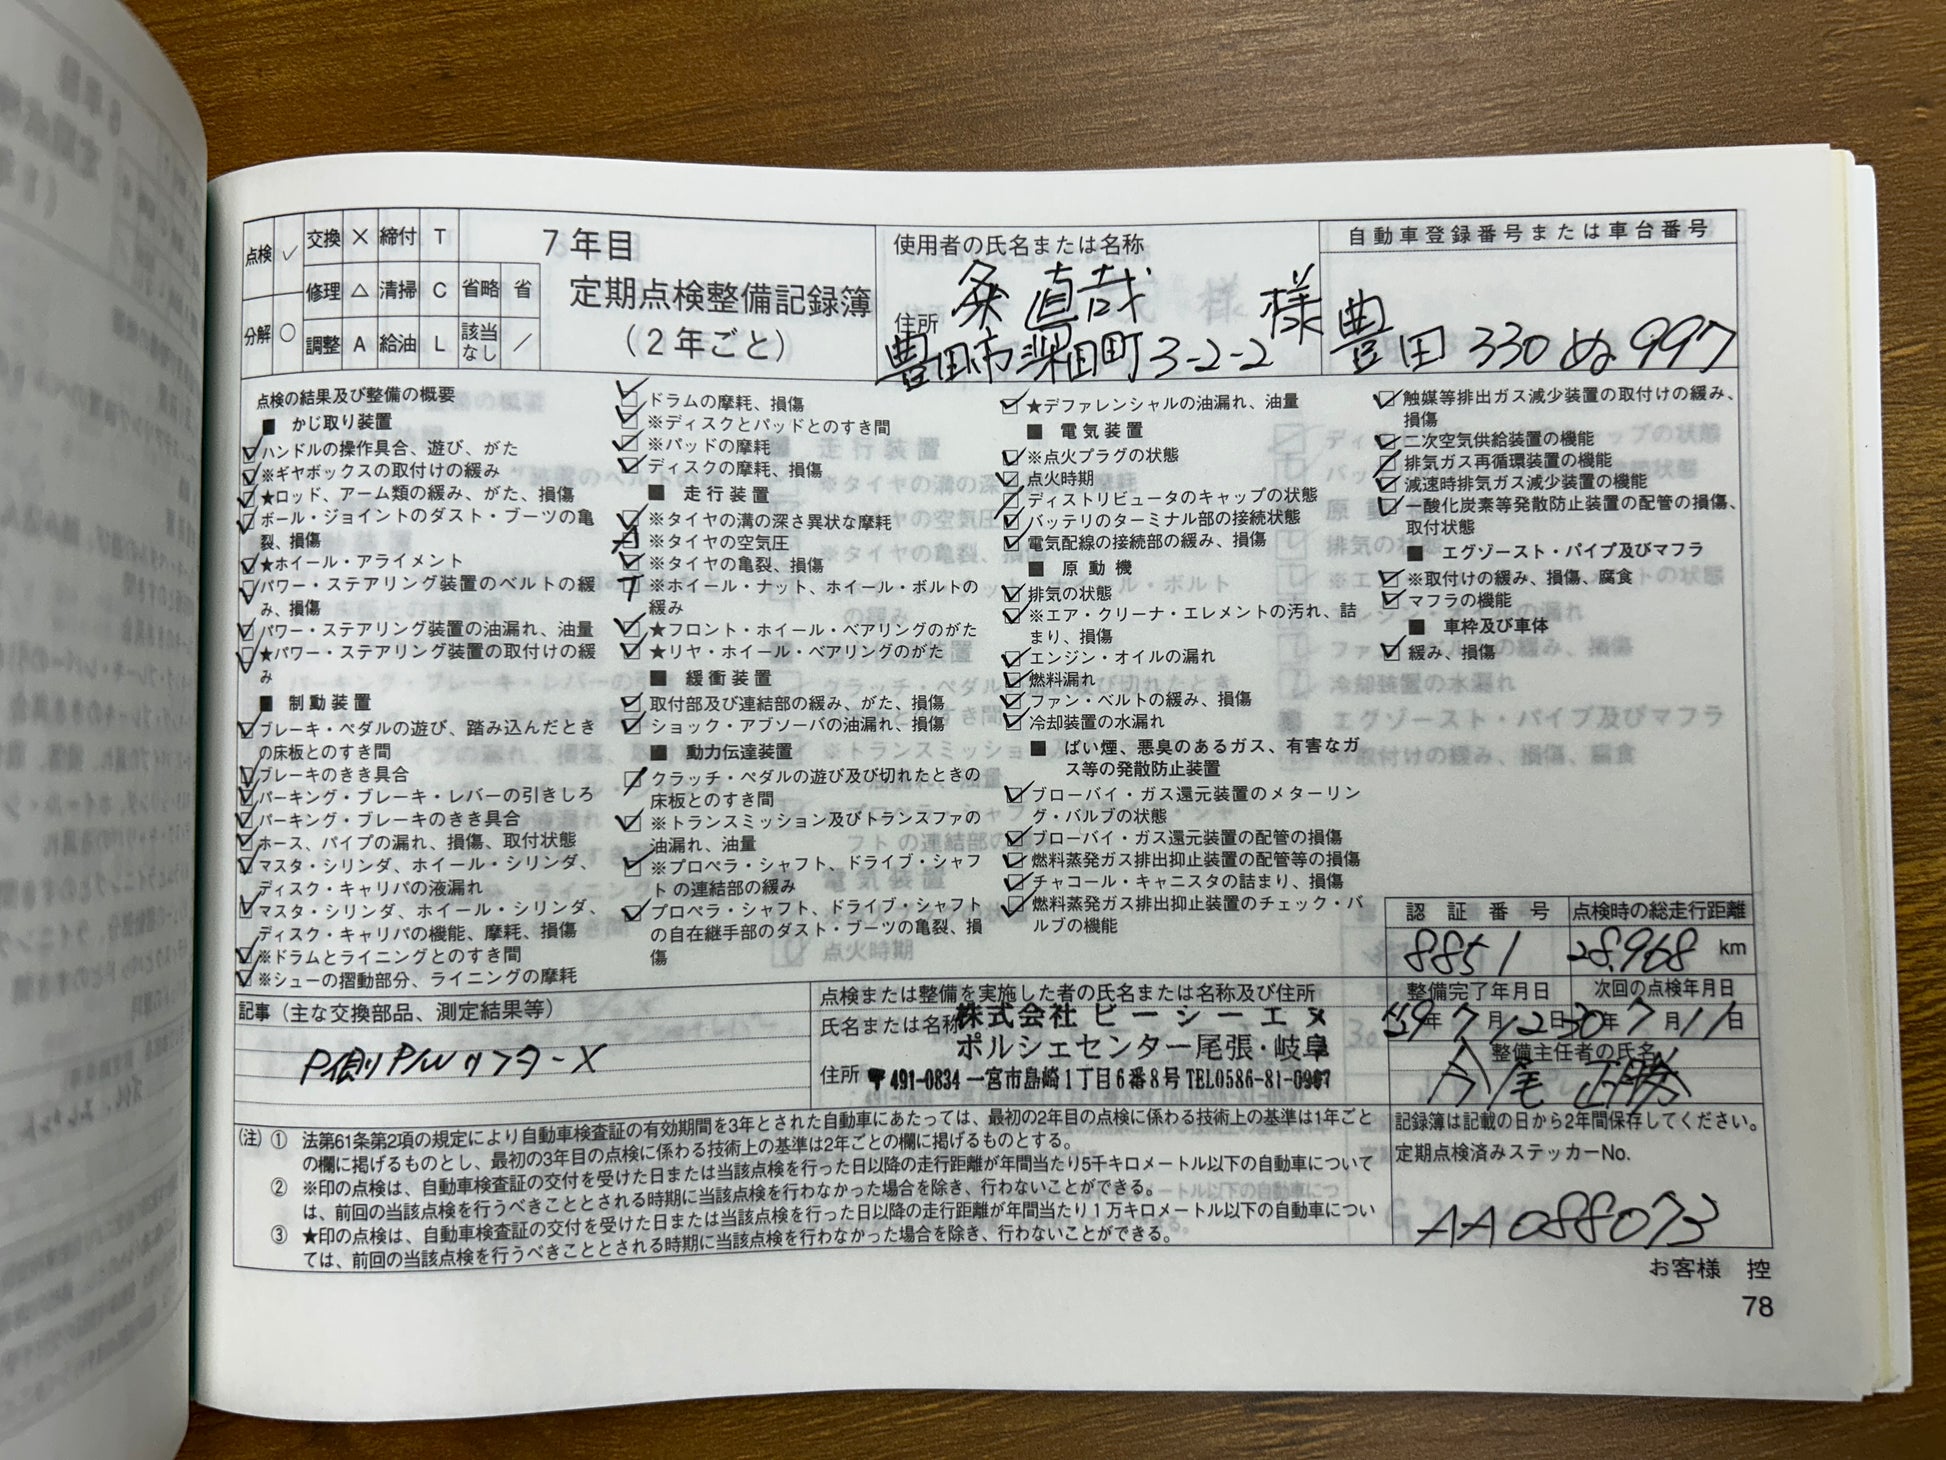 点検 ✓ 交換 × 締付 T
修理 △ 清掃 C 省略 省
分解 ○ 調整 A 給油 L 該当なし ／
7年目
定期点検整備記録簿
（2年ごと）
使用者の氏名または名称
粂 直哉 様
住所
豊田市深田町3-2-2
自動車登録番号または車台番号
豊田 330 ぬ 997
点検の結果及び整備の概要
■ かじ取り装置
ハンドルの操作具合、遊び、がた
※ギヤボックスの取付けの緩み
★ロッド、アーム類の緩み、がた、損傷
ボール・ジョイントのダスト・ブーツの亀
裂、損傷
★ホイール・アライメント
パワー・ステアリング装置のベルトの緩
み、損傷
パワー・ステアリング装置の油漏れ、油量
★パワー・ステアリング装置の取付けの緩
み
■ 制動装置
ブレーキ・ペダルの遊び、踏み込んだとき
の床板とのすき間
ブレーキのきき具合
パーキング・ブレーキ・レバーの引きしろ
パーキング・ブレーキのきき具合
ホース、パイプの漏れ、損傷、取付状態
マスタ・シリンダ、ホイール・シリンダ、
ディスク・キャリパの液漏れ
マスタ・シリンダ、ホイール・シリンダ、
ディスク・キャリパの機能、摩耗、損傷
※ドラムとライニングとのすき間
※シューの摺動部分、ライニングの摩耗
ドラムの摩耗、損傷
※ディスクとパッドとのすき間
※パッドの摩耗
ディスクの摩耗、損傷
■ 走行装置
※タイヤの溝の深さ異状な摩耗
A ※タイヤの空気圧
※タイヤの亀裂、損傷
T ※ホイール・ナット、ホイール・ボルトの
緩み
★フロント・ホイール・ベアリングのがた
★リヤ・ホイール・ベアリングのがた
■ 緩衝装置
取付部及び連結部の緩み、がた、損傷
ショック・アブソーバの油漏れ、損傷
■ 動力伝達装置
クラッチ・ペダルの遊び及び切れたときの
床板とのすき間
※トランスミッション及びトランスファの
油漏れ、油量
※プロペラ・シャフト、ドライブ・シャフ
トの連結部の緩み
プロペラ・シャフト、ドライブ・シャフト
の自在継手部のダスト・ブーツの亀裂、損
傷
★デファレンシャルの油漏れ、油量
■ 電気装置
※点火プラグの状態
点火時期
ディストリビュータのキャップの状態
バッテリのターミナル部の接続状態
電気配線の接続部の緩み、損傷
■ 原動機
排気の状態
※エア・クリーナ・エレメントの汚れ、詰
まり、損傷
エンジン・オイルの漏れ
燃料漏れ
ファン・ベルトの緩み、損傷
冷却装置の水漏れ
■ ばい煙、悪臭のあるガス、有害なガ
ス等の発散防止装置
ブローバイ・ガス還元装置のメターリン
グ・バルブの状態
ブローバイ・ガス還元装置の配管の損傷
燃料蒸発ガス排出抑止装置の配管等の損傷
チャコール・キャニスタの詰まり、損傷
燃料蒸発ガス排出抑止装置のチェック・バ
ルブの機能
触媒等排出ガス減少装置の取付けの緩み、
損傷
二次空気供給装置の機能
排気ガス再循環装置の機能
減速時排気ガス減少装置の機能
一酸化炭素等発散防止装置の配管の損傷、
取付状態
■ エグゾースト・パイプ及びマフラ
※取付けの緩み、損傷、腐食
マフラの機能
■ 車枠及び車体
緩み、損傷
認証番号 点検時の総走行距離
8851 28.968 km
整備完了年月日 次回の点検年月日
年 7 月 12 日 30 年 7 月 11 日
整備主任者の氏名
今尾 正勝
記事（主な交換部品、測定結果等）
P側 P/W リフター ×
点検または整備を実施した者の氏名または名称及び住所
氏名または名称 株式会社 ピーシーエヌ
ポルシェセンター尾張・岐阜
住所 〒491-0834 一宮市島崎1丁目6番8号 TEL0586-81-0907
（注）① 法第61条第2項の規定により自動車検査証の有効期間を3年とされた自動車にあたっては、最初の2年目の点検に係わる技術上の基準は1年ごと
の欄に掲げるものとし、最初の3年目の点検に係わる技術上の基準は2年ごとの欄に掲げるものとする。
② ※印の点検は、自動車検査証の交付を受けた日または当該点検を行った日以降の走行距離が年間当たり5千キロメートル以下の自動車について
は、前回の当該点検を行うべきこととされる時期に当該点検を行わなかった場合を除き、行わないことができる。
③ ★印の点検は、自動車検査証の交付を受けた日または当該点検を行った日以降の走行距離が年間当たり1万キロメートル以下の自動車につい
ては、前回の当該点検を行うべきこととされる時期に当該点検を行わなかった場合を除き、行わないことができる。
記録簿は記載の日から2年間保存してください。
定期点検済みステッカーNo.
AA088073
お客様 控
78